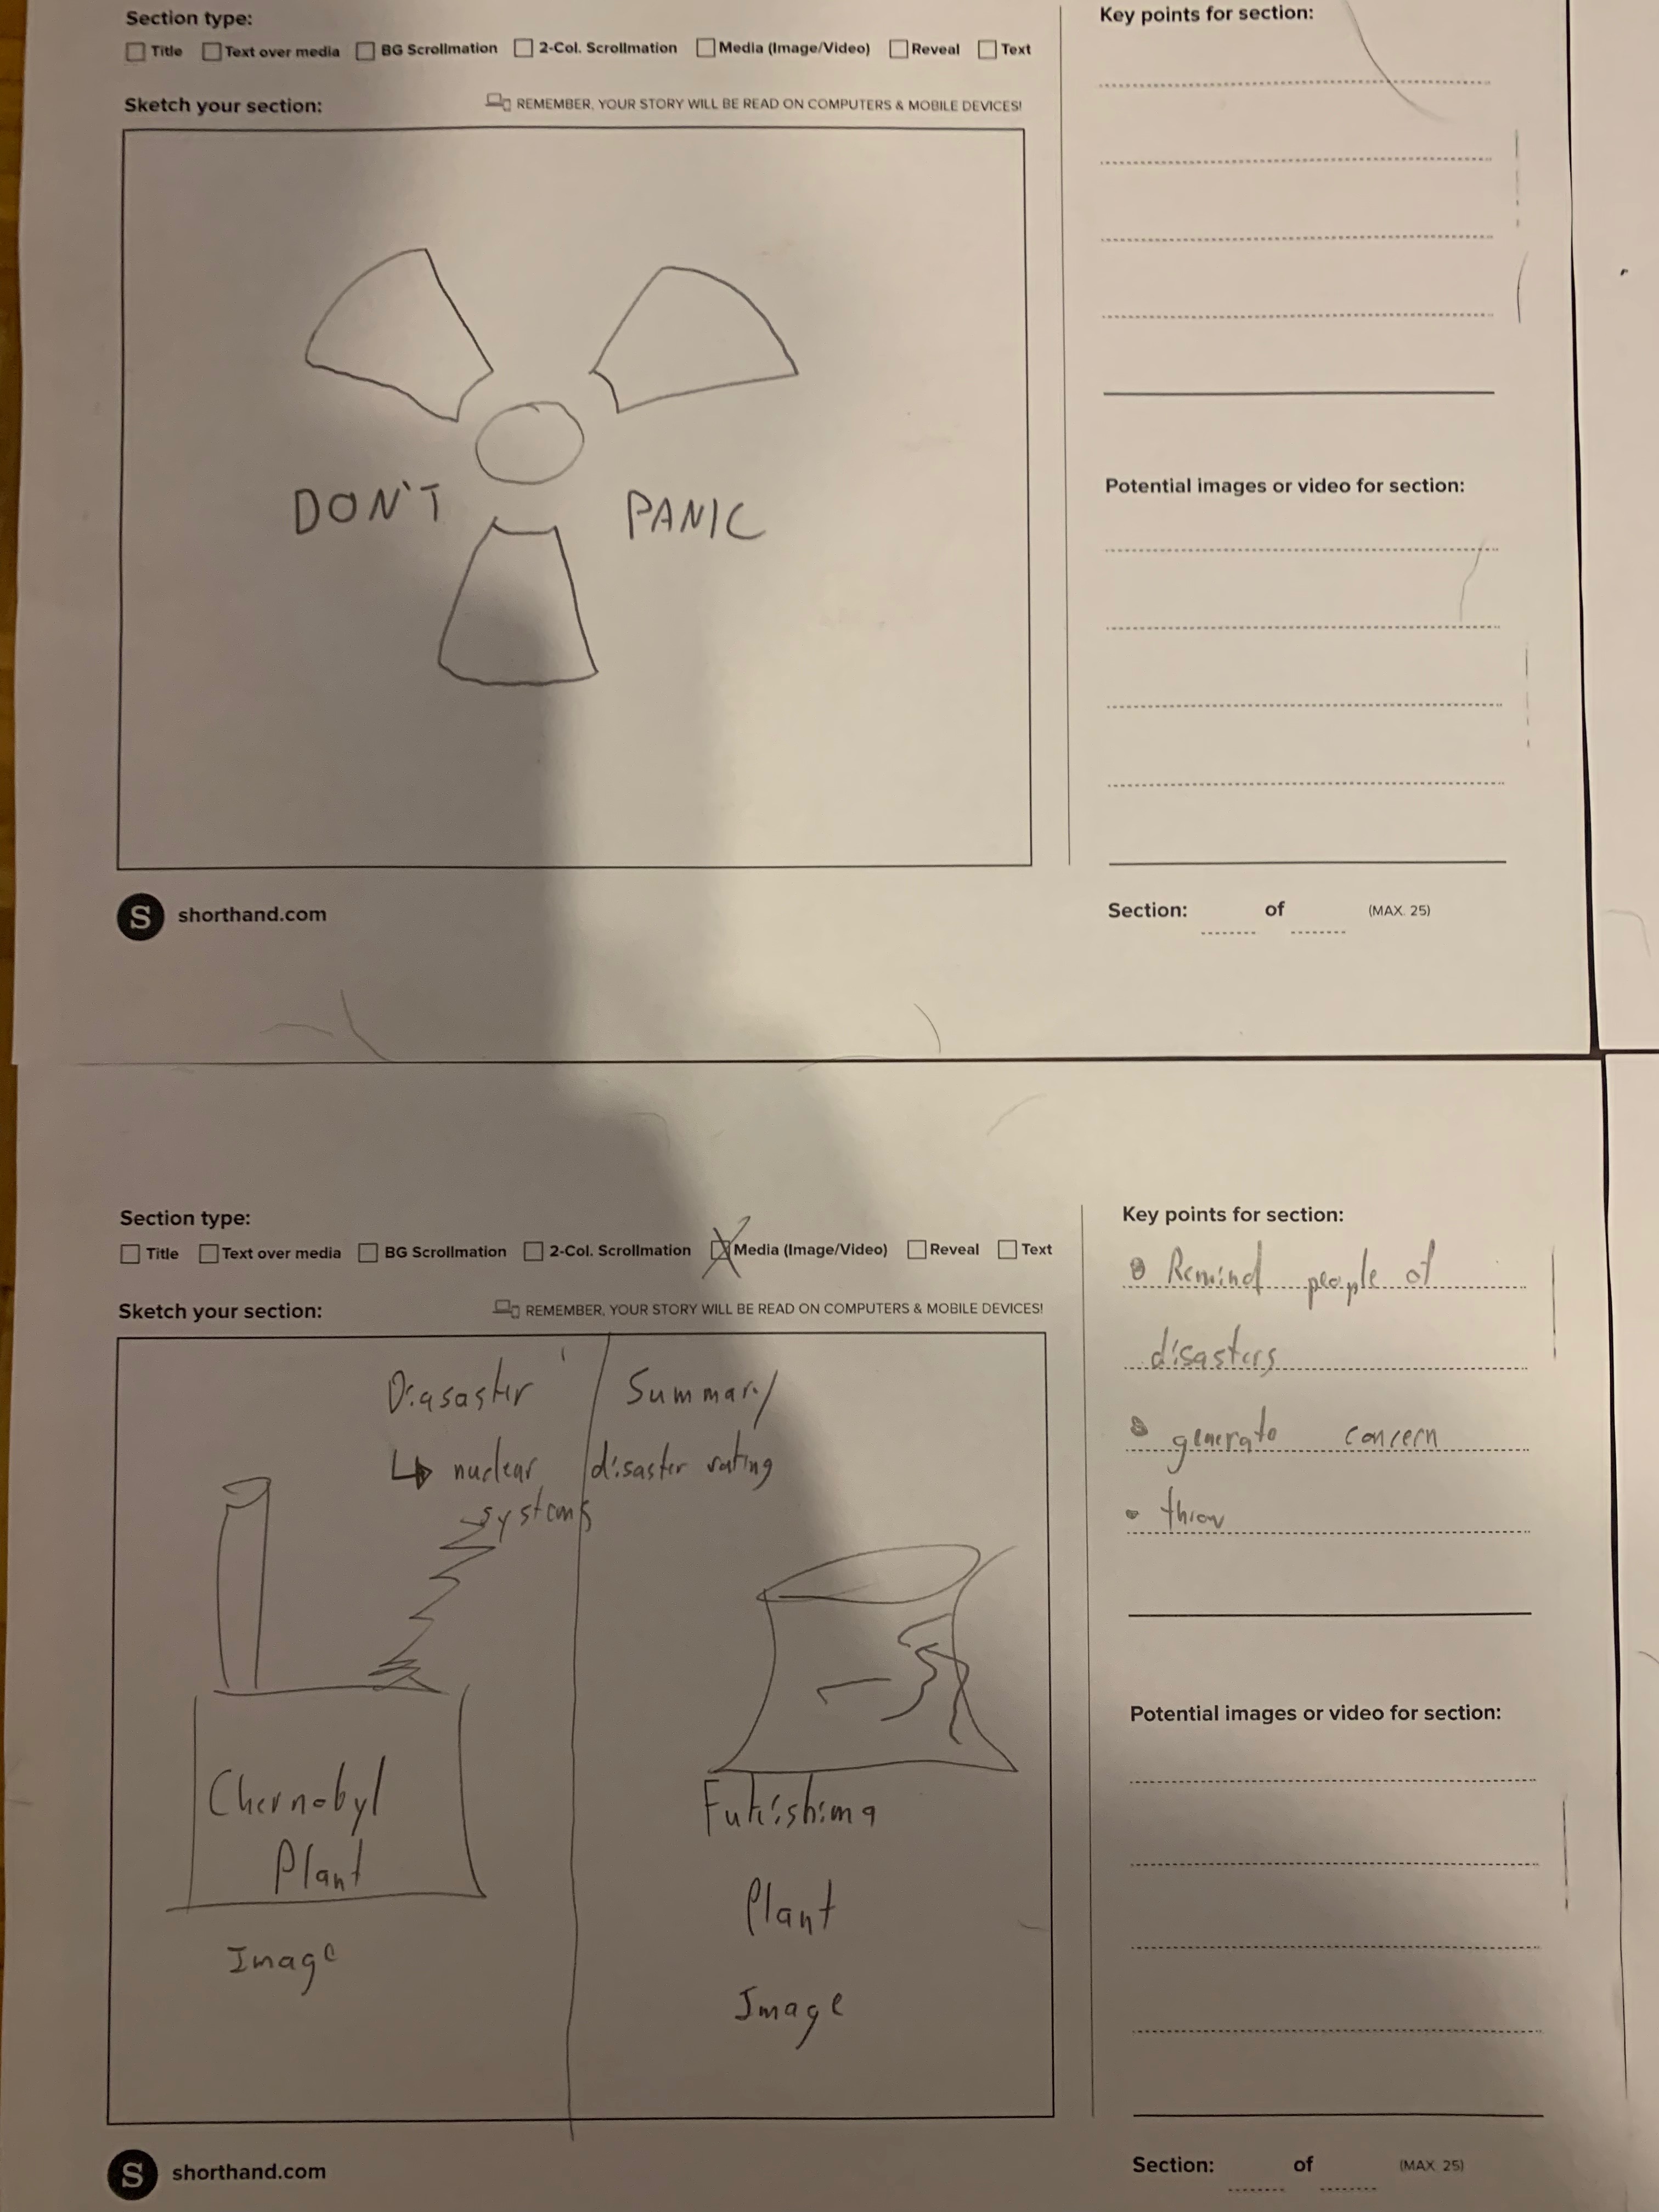 Section type:
Title Text over media BG Scrollmation 2-Col. Scrollmation Media (Image/Video) Reveal Text
Sketch your section:
REMEMBER, YOUR STORY WILL BE READ ON COMPUTERS & MOBILE DEVICES!
DON'T PANIC
Key points for section:
Potential images or video for section:
S shorthand.com
Section: of (MAX. 25)
Section type:
Title Text over media BG Scrollmation 2-Col. Scrollmation Media (Image/Video) Reveal Text
Sketch your section:
REMEMBER, YOUR STORY WILL BE READ ON COMPUTERS & MOBILE DEVICES!
Diasaster Summary
↳ nuclear disaster rating
systems
Chernobyl
Plant
Image
Fukishima
Plant
Image
Key points for section:
• Remind people of
disasters
• generate concern
•
Potential images or video for section:
S shorthand.com
Section: of (MAX. 25)